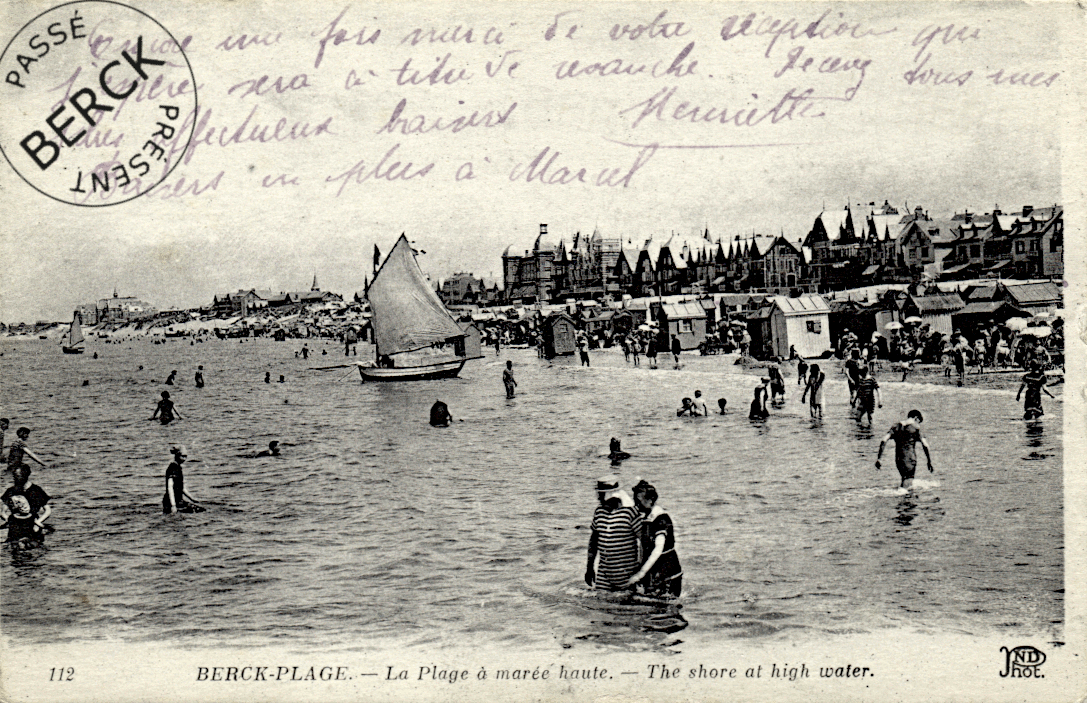 PASSÉ
BERCK
PRÉSENT
Encore une fois merci de votre réception qui
j'espère sera à titre de revanche. Recevez tous mes
plus affectueux baisers Henriette
Baisers en plus à Marcel
112 BERCK-PLAGE. — La Plage à marée haute. — The shore at high water.
ND Phot.